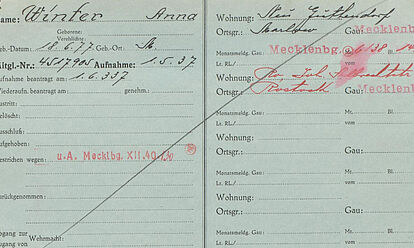 ame: Winter Anna
Geborene:
Verehlichte:
eb.-Datum: 18.6.77 Geb.-Ort M.
itgl.-Nr.: 4517905 Aufnahme: 1.5.37
ufnahme beantragt am: 1.6.337
Wiederaufn. beantragt am: genehm.:
ustritt:
elöscht:
usschluß:
ufgehoben:
estrichen wegen: u.A. Mecklbg. XII.40
urückgenommen:
bgang zur Wehrmacht:
ugang von
Wohnung: Neu Guthendorf
Ortsgr.: Marlow Gau: Mecklenbg.
Monatsmeldg. Gau: Mecklenbg. 6/38 Bl. 14
Lt. RL./ vom
Wohnung: Ro. Joh.
Ortsgr.: Rostock Gau: Mecklen
Monatsmeldg. Gau: Mt. Bl.
Lt. RL./ vom
Wohnung:
Ortsgr.: Gau:
Monatsmeldg. Gau: Mt. Bl.
Lt. RL./ vom
Wohnung:
Ortsgr.: Gau:
Monatsmeldg. Gau: Mt. Bl.
Lt. RL./ vom
Wohnung:
Ortsgr.: Gau: